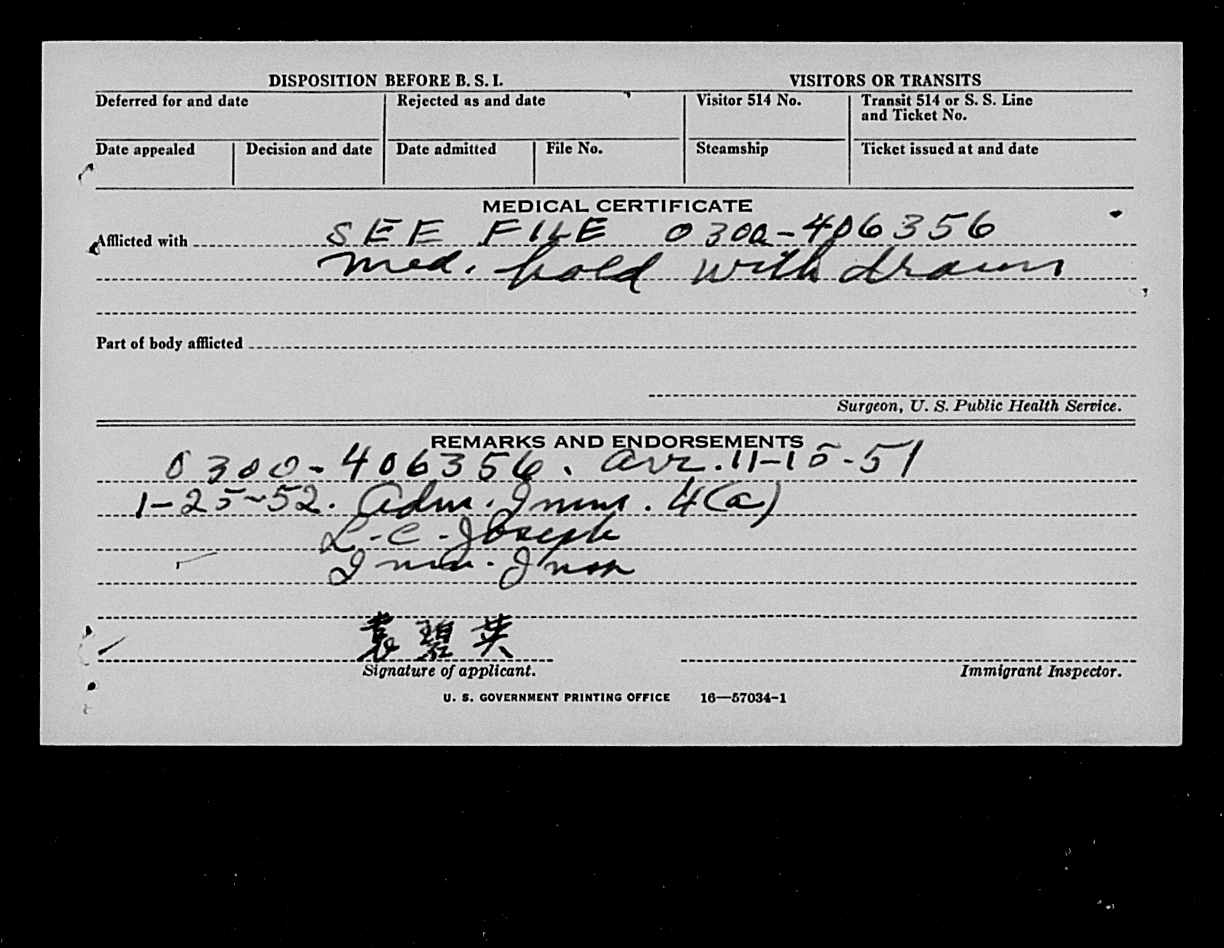 DISPOSITION BEFORE B. S. I. VISITORS OR TRANSITS
Deferred for and date Rejected as and date Visitor 514 No. Transit 514 or S. S. Line
and Ticket No.
Date appealed Decision and date Date admitted File No. Steamship Ticket issued at and date
MEDICAL CERTIFICATE
Afflicted with SEE FILE 0300-406356
med. hold withdrawn
Part of body afflicted
Surgeon, U. S. Public Health Service.
REMARKS AND ENDORSEMENTS
0300-406356. arr. 11-15-51
1-25-52. Adm. Imm. 4(a)
L. C. Joseph
Imm. Insp
袁碧英
Signature of applicant. Immigrant Inspector.
U. S. GOVERNMENT PRINTING OFFICE 16—57034-1